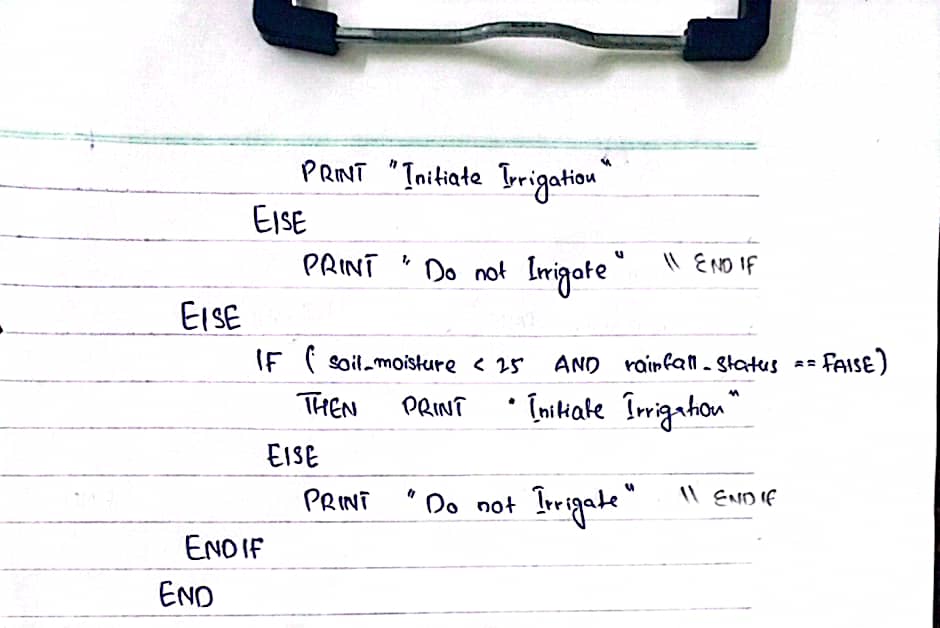 PRINT "Initiate Irrigation"
ElSE
PRINT "Do not Irrigate" \\ END IF
ElSE
IF ( soil_moisture < 25 AND rainfall_status == FAlSE)
THEN PRINT "Initiate Irrigation"
ElSE
PRINT "Do not Irrigate" \\ END IF
ENDIF
END